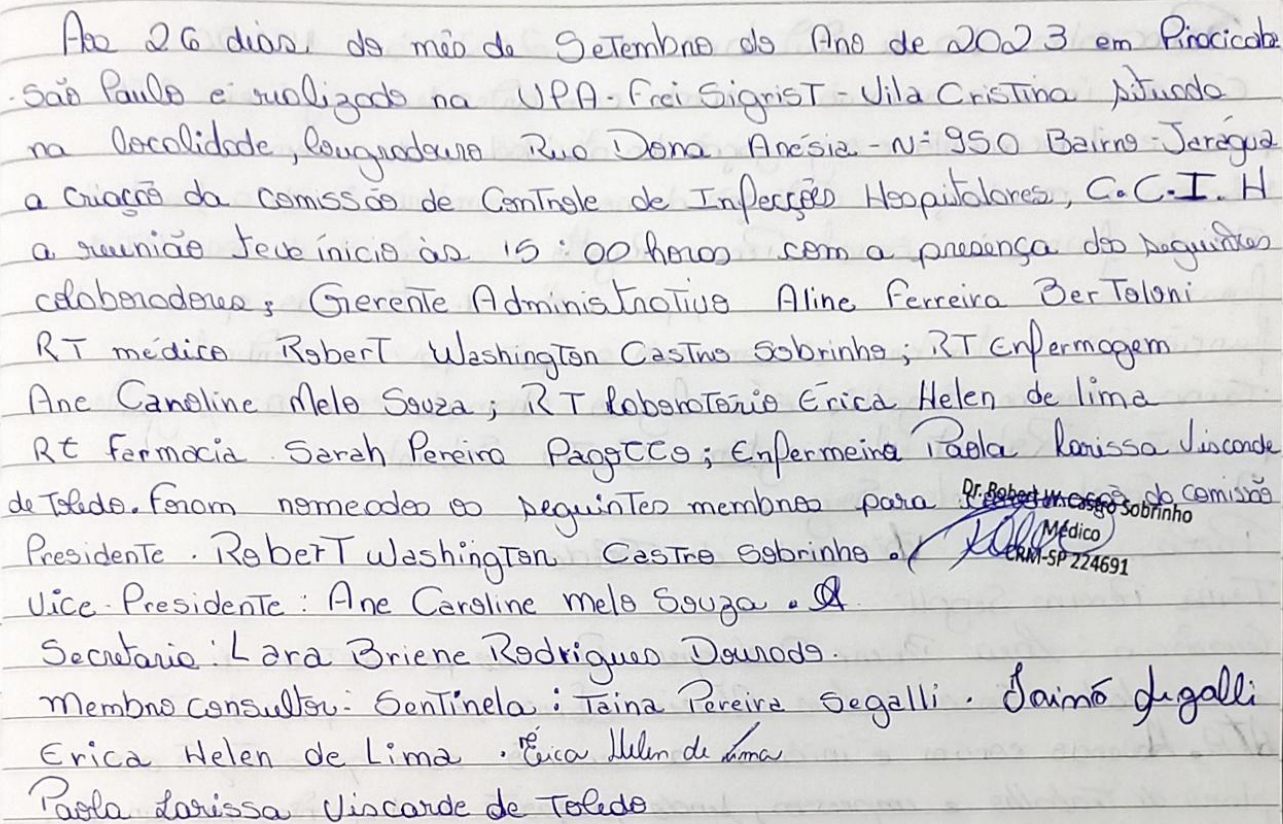 Aos 26 dias do mês de Setembro do Ano de 2023 em Piracicaba
São Paulo e realizado na UPA - Frei Sigrist - Vila Cristina situada
na localidade, lougradouro Rua Dona Anésia - Nº 950 Bairro - Jaraguá
a criação da comissão de Controle de Infecções Hospitalares, C.C.I.H
a reunião teve início às 15:00 horas com a presença dos seguintes
colaboradores; Gerente Administrativo Aline Ferreira Bertoloni
RT médico Robert Washington Castro Sobrinho; RT Enfermagem
Ane Caroline Melo Souza; RT laboratório Érica Helen de lima
Rt farmacia Sarah Pereira Pagotto; Enfermeira Paola Larissa Visconde
de Toledo. Foram nomeados os seguintes membros para da comissão
Dr. Robert W. Castro Sobrinho
Médico
CRM-SP 224691
Presidente. Robert Washington Castro Sobrinho.
Vice-Presidente: Ane Caroline Melo Souza.
Secretaria: Lara Briene Rodrigues Dourado.
Membro consultor - Sentinela: Taina Pereira Segalli. Tainá Segalli
Erica Helen de Lima. Érica Helen de Lima
Paola Larissa Viscarde de Toledo